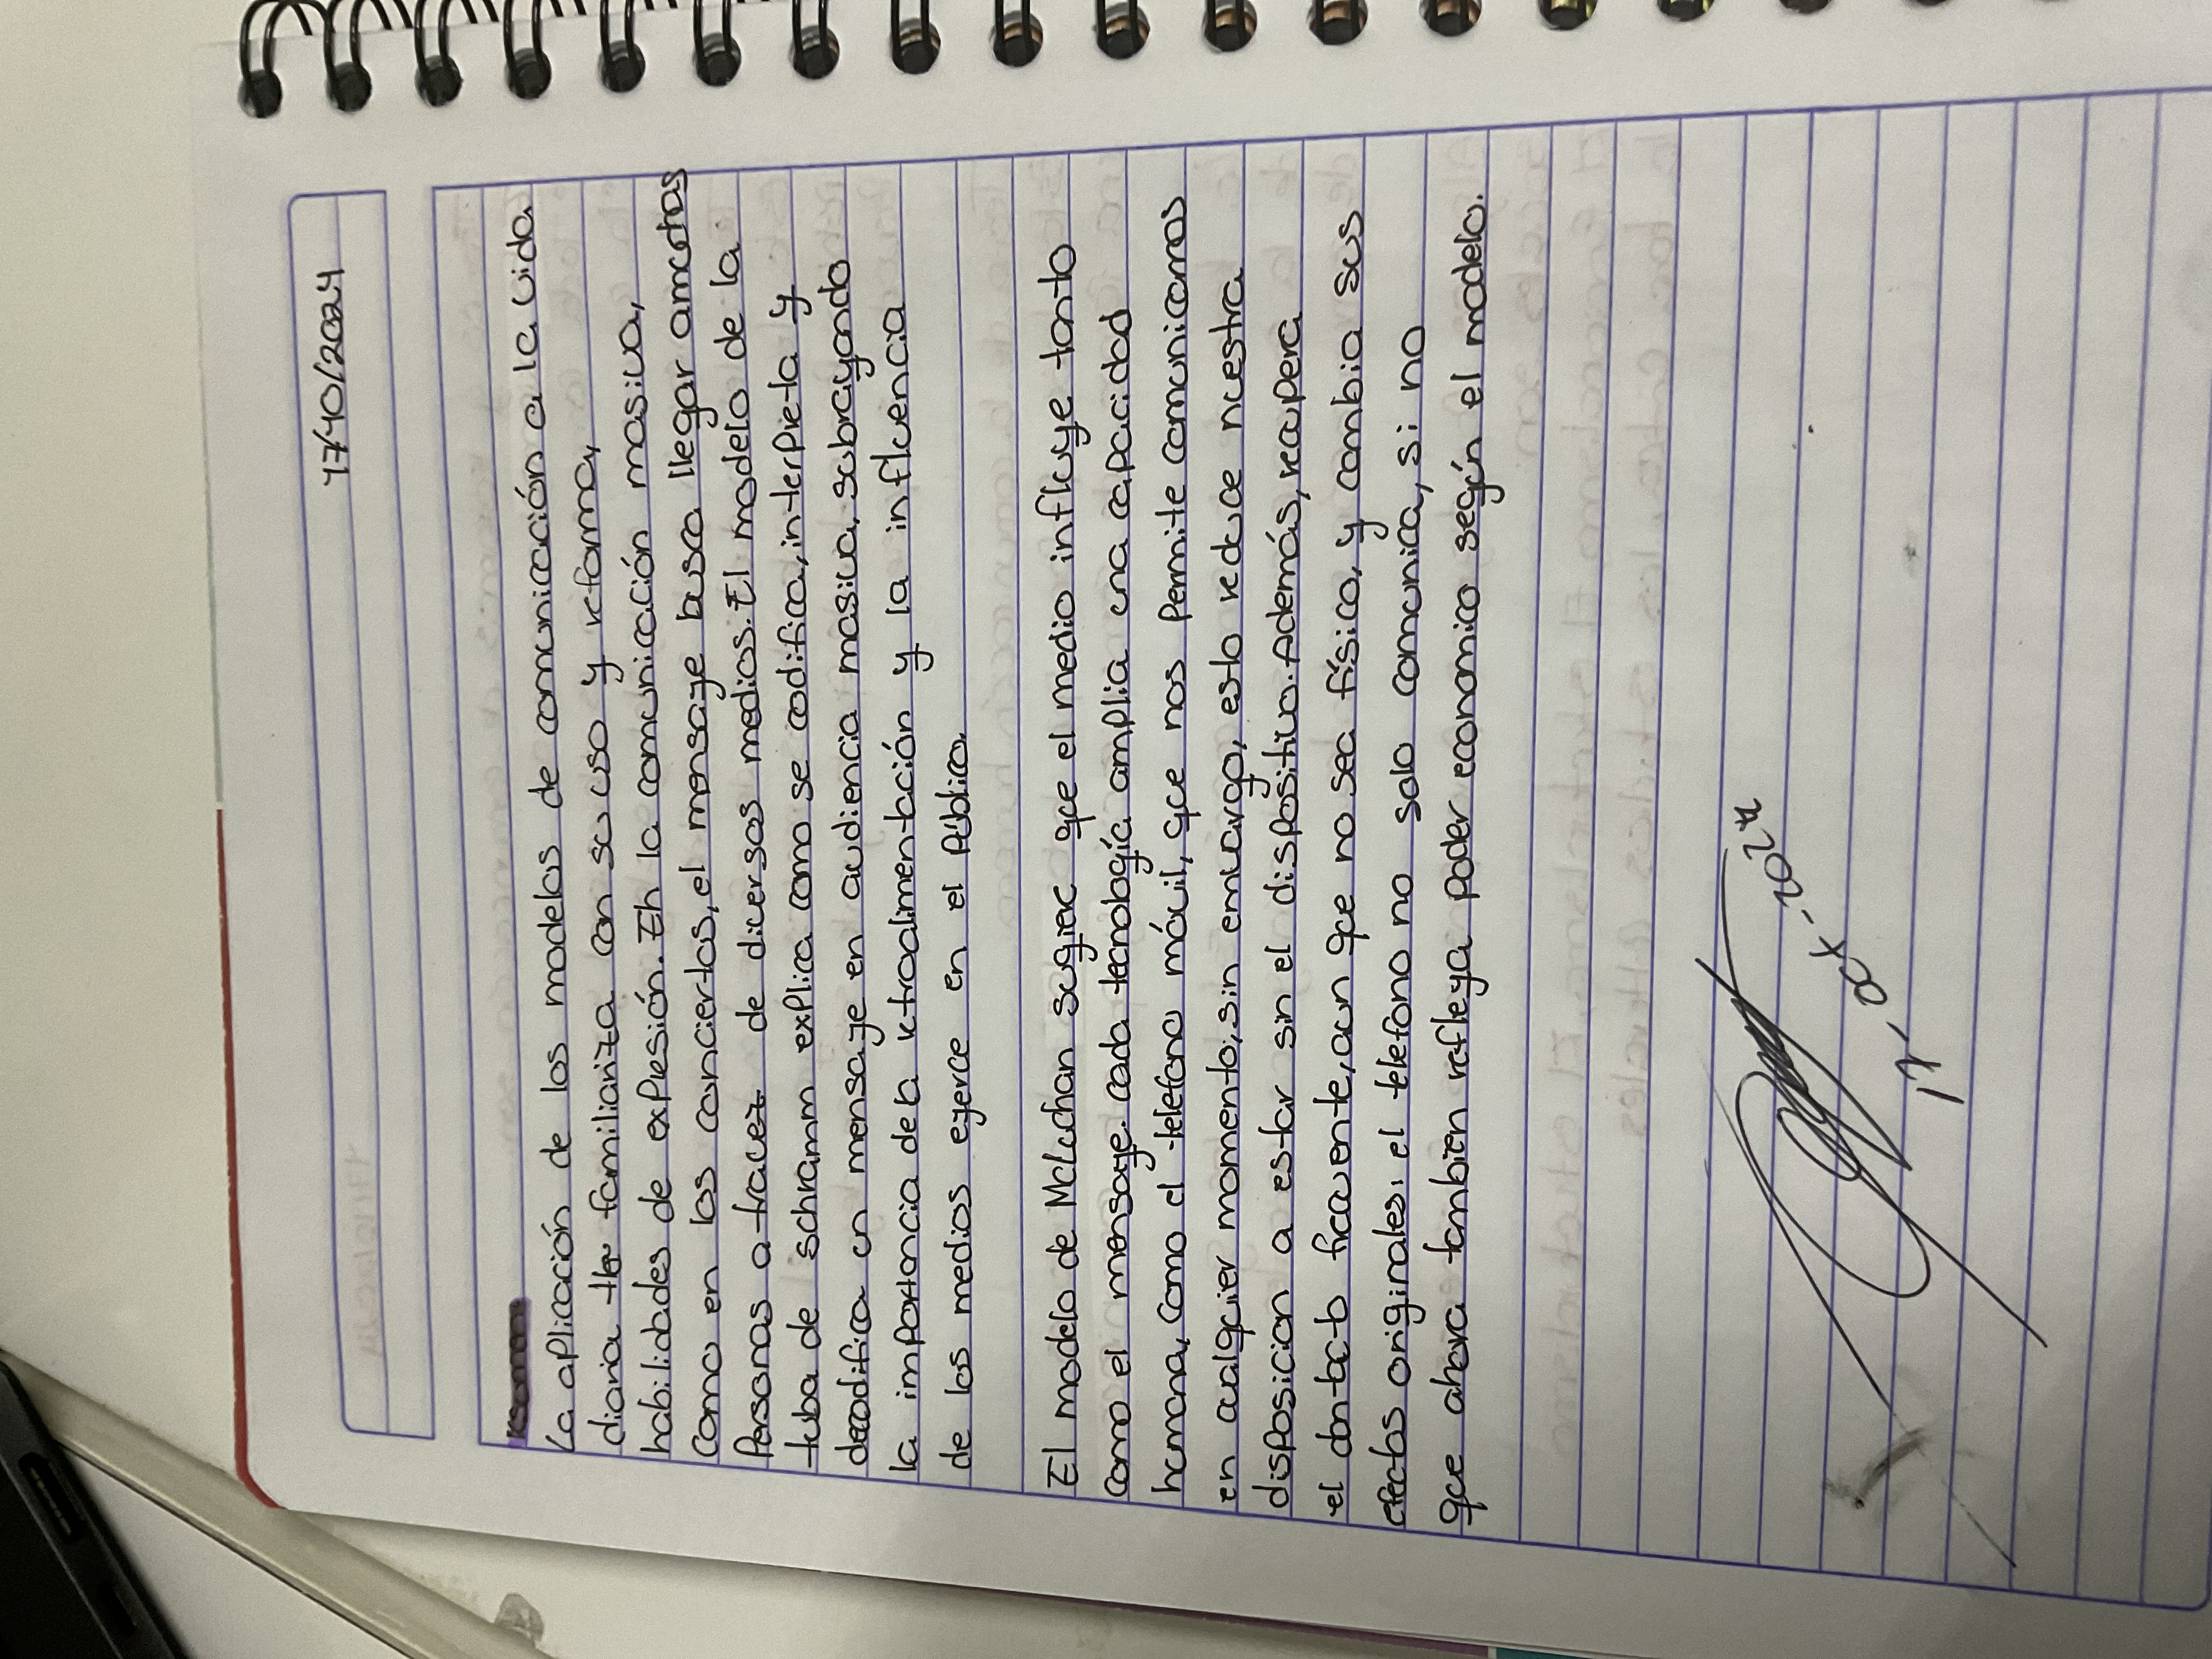 17/10/2024
Resumen
La aplicación de los modelos de comunicación a la vida
diaria se familiariza con su uso y reforma,
habilidades de expresión. En la comunicación masiva,
como en los conciertos, el mensaje busca llegar a muchas
Personas a travez de diversos medios. El modelo de la
tuba de schramm explica como se codifica, interpreta y
decodifica un mensaje en audiencia masiva, subrayando
la importancia de la retroalimentación y la influencia
de los medios ejerce en el público.
El modelo de McLuhan sugiere que el medio influye tanto
como el mensaje. cada tecnología amplia una capacidad
humana, como el telefono móvil, que nos permite comunicarnos
en cualquier momento, sin embargo, esto reduce nuestra
disposicion a estar sin el dispositivo. Además, recupera
el contacto frecuente, aun que no sea físico, y cambia sus
efectos originales: el telefono no solo comunica, si no
que ahora tambien refleja poder economico según el modelo.
17, Oct - 2024